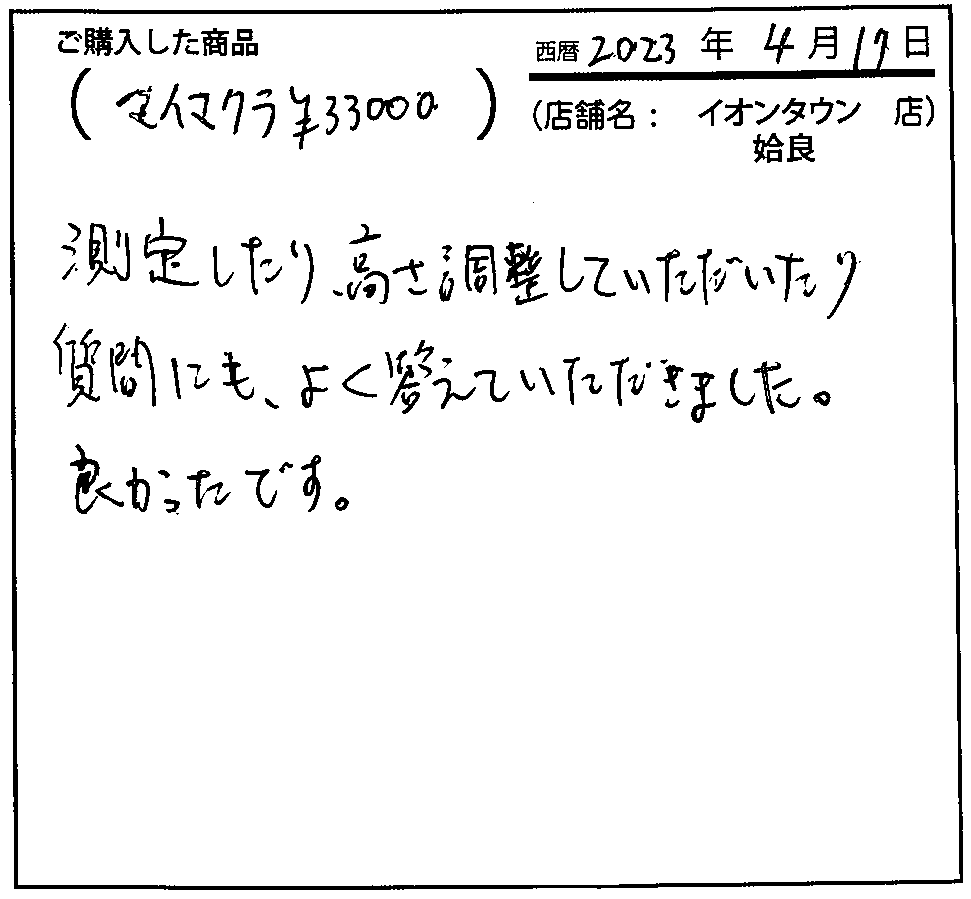 ご購入した商品
西暦 2023 年 4 月 17 日
( マイマクラ ¥33000 )
(店舗名: イオンタウン 姶良 店)
測定したり、高さ調整していただいたり
質問にも、よく答えていただきました。
良かったです。